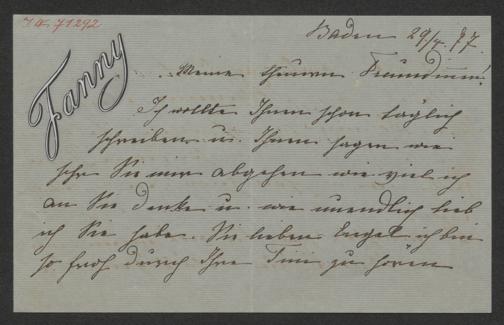 I.N. 71292
Fanny
Baden 29/4. 97.
Meine theuren Freundinnen!
Ich wollte Ihnen schon täglich
schreiben u. Ihnen sagen wie
sehr Sie mir abgehen wie viel ich
an Sie denke u. wie unendlich lieb
ich Sie habe. Sie lieben Engel ich bin
so froh durch Ihre Tini zu hören